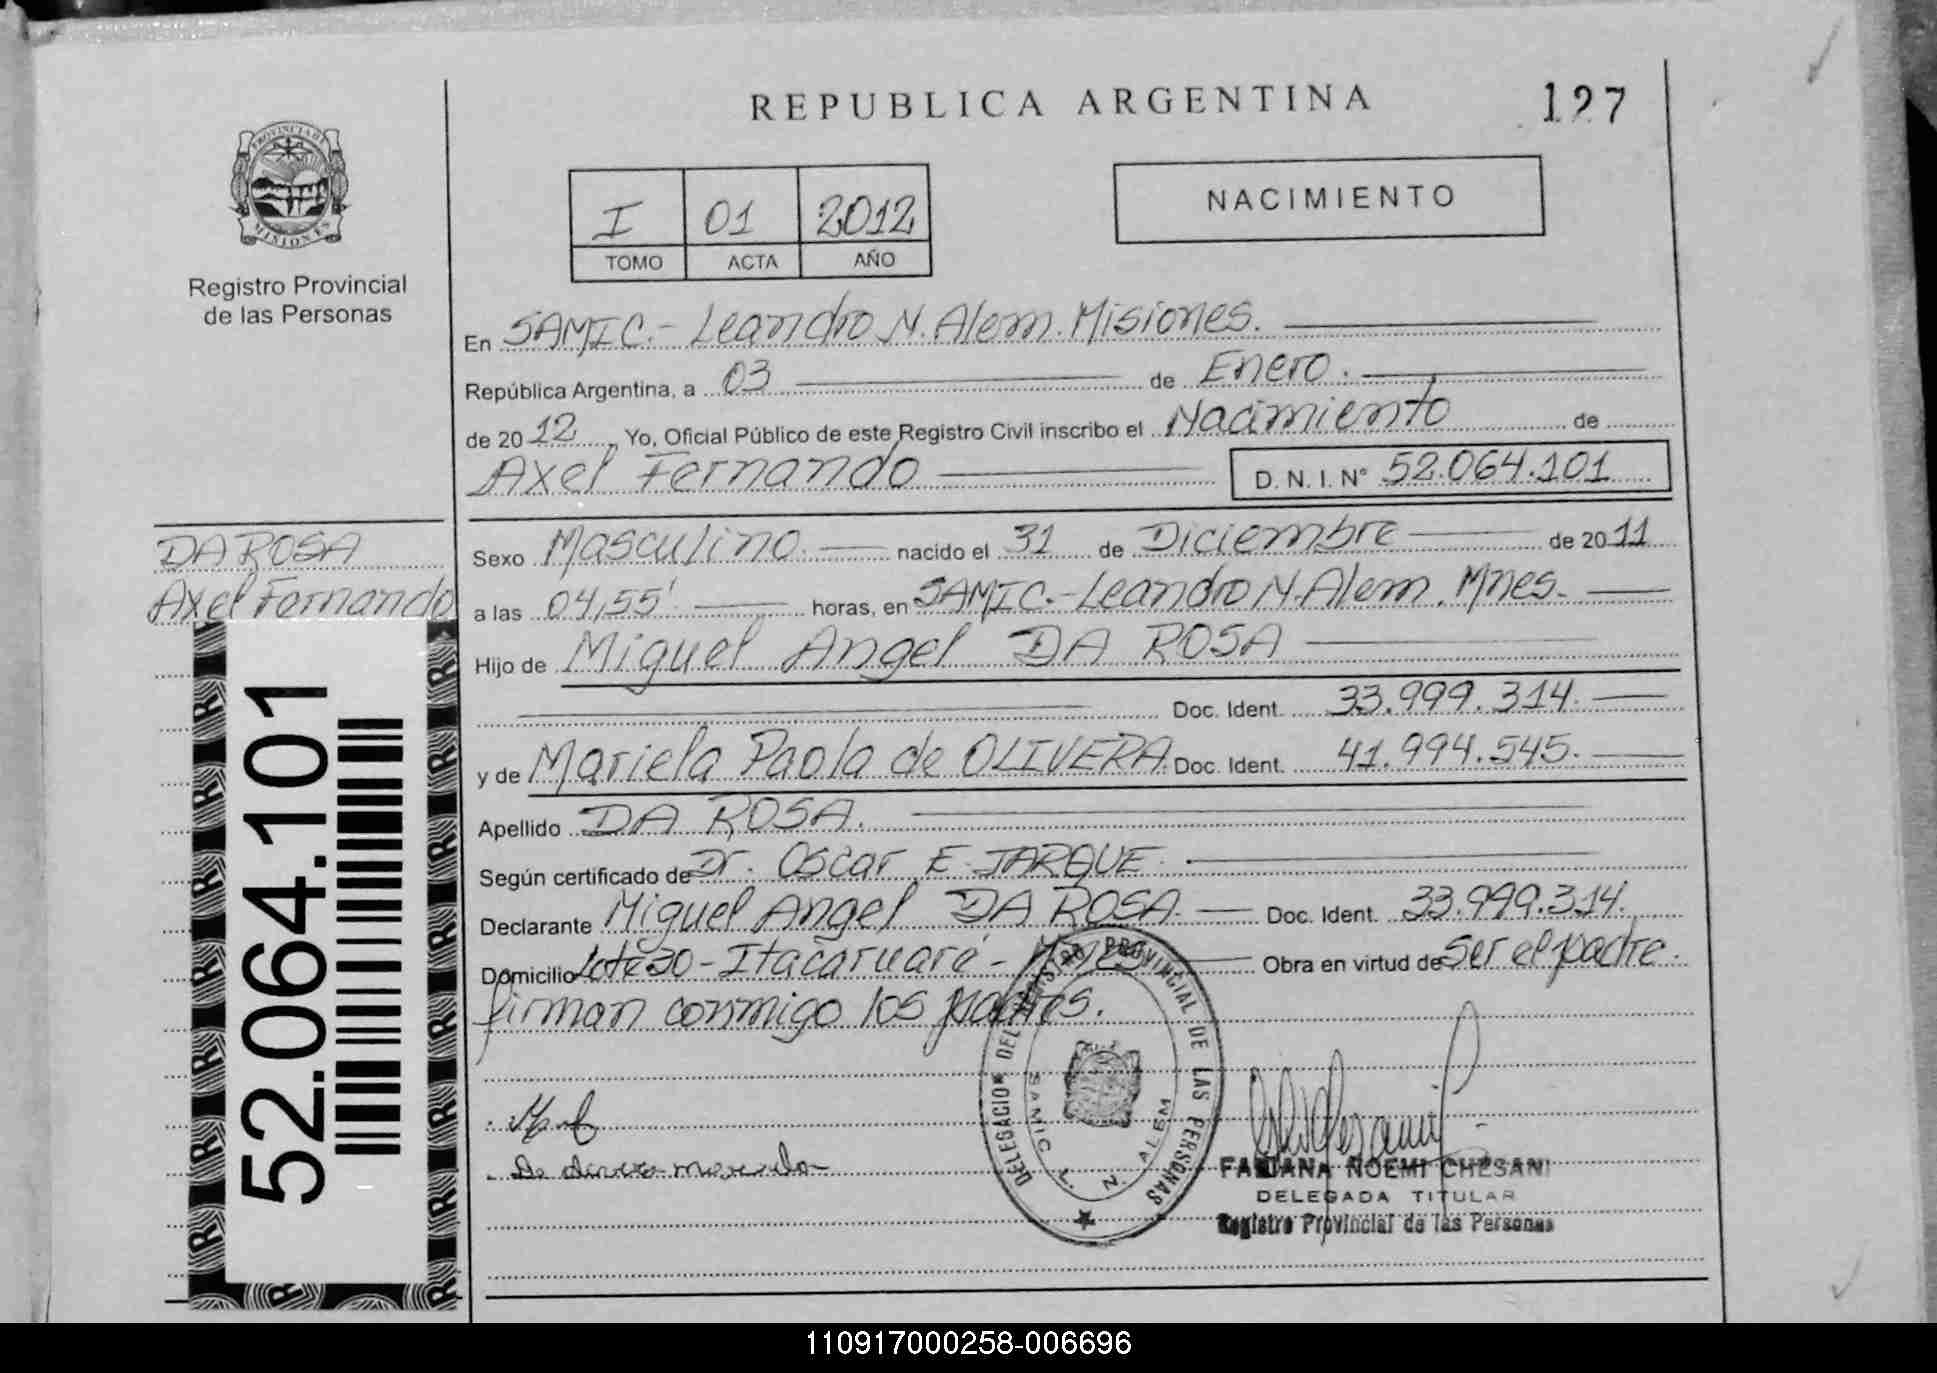 REPUBLICA ARGENTINA
127
PROVINCIA DE
MISIONES
Registro Provincial
de las Personas
I 01 2012
TOMO ACTA AÑO
NACIMIENTO
En SAMIC.- Leandro N. Alem. Misiones.
República Argentina, a 03 de Enero.
de 2012, Yo, Oficial Público de este Registro Civil inscribo el Nacimiento de
Axel Fernando D.N.I. N° 52.064.101
DA ROSA
Axel Fernando
52.064.101
Sexo Masculino. nacido el 31 de Diciembre de 2011
a las 04,55' horas, en SAMIC.-Leandro N. Alem. Mnes.
Hijo de Miguel Angel DA ROSA
Doc. Ident. 33.999.314.
y de Mariela Paola de OLIVERA. Doc. Ident. 41.994.545.
Apellido DA ROSA.
Según certificado de Dr. Oscar E. JARQUE.
Declarante Miguel Angel DA ROSA. Doc. Ident. 33.999.314.
Domicilio Lote 30 - Itacaruaré - Mnes Obra en virtud de Ser el padre.
firman conmigo los padres.
DELEGACION DEL REGISTRO PROVINCIAL DE LAS PERSONAS
SAMIC L. N. ALEM
FABIANA NOEMI CHESANI
DELEGADA TITULAR
Registro Provincial de las Personas
110917000258-006696